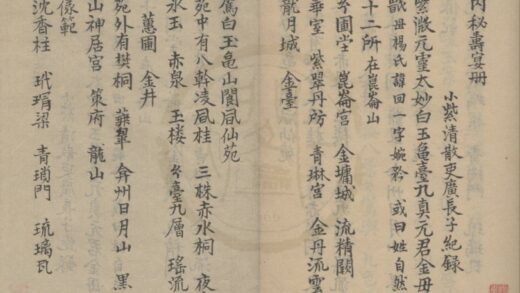 内秘壽宴册
小紫清散吏廣長子紀錄
雲激元靈太妙白玉龜臺九真元君金母
戲母楊氏諱回一字婉妗 或曰姓自然
十二所在崑崙山
崑崙宮 金墉城 流精闕
華室 紫翠丹房 青琳宮 金丹流雲
龍月城 金臺
鳳白玉龜山閬風仙苑
苑中有八幹凌風桂 三株赤水桐 夜
水玉 赤泉 玉楼 臺九層 瑤流
蕙圃 金井
苑外有樊桐 蘂翠 弇州日月山 黑
山神居宮 策府 龍山
儀範
沈香柱 玳瑁梁 青瑣門 琉璃瓦